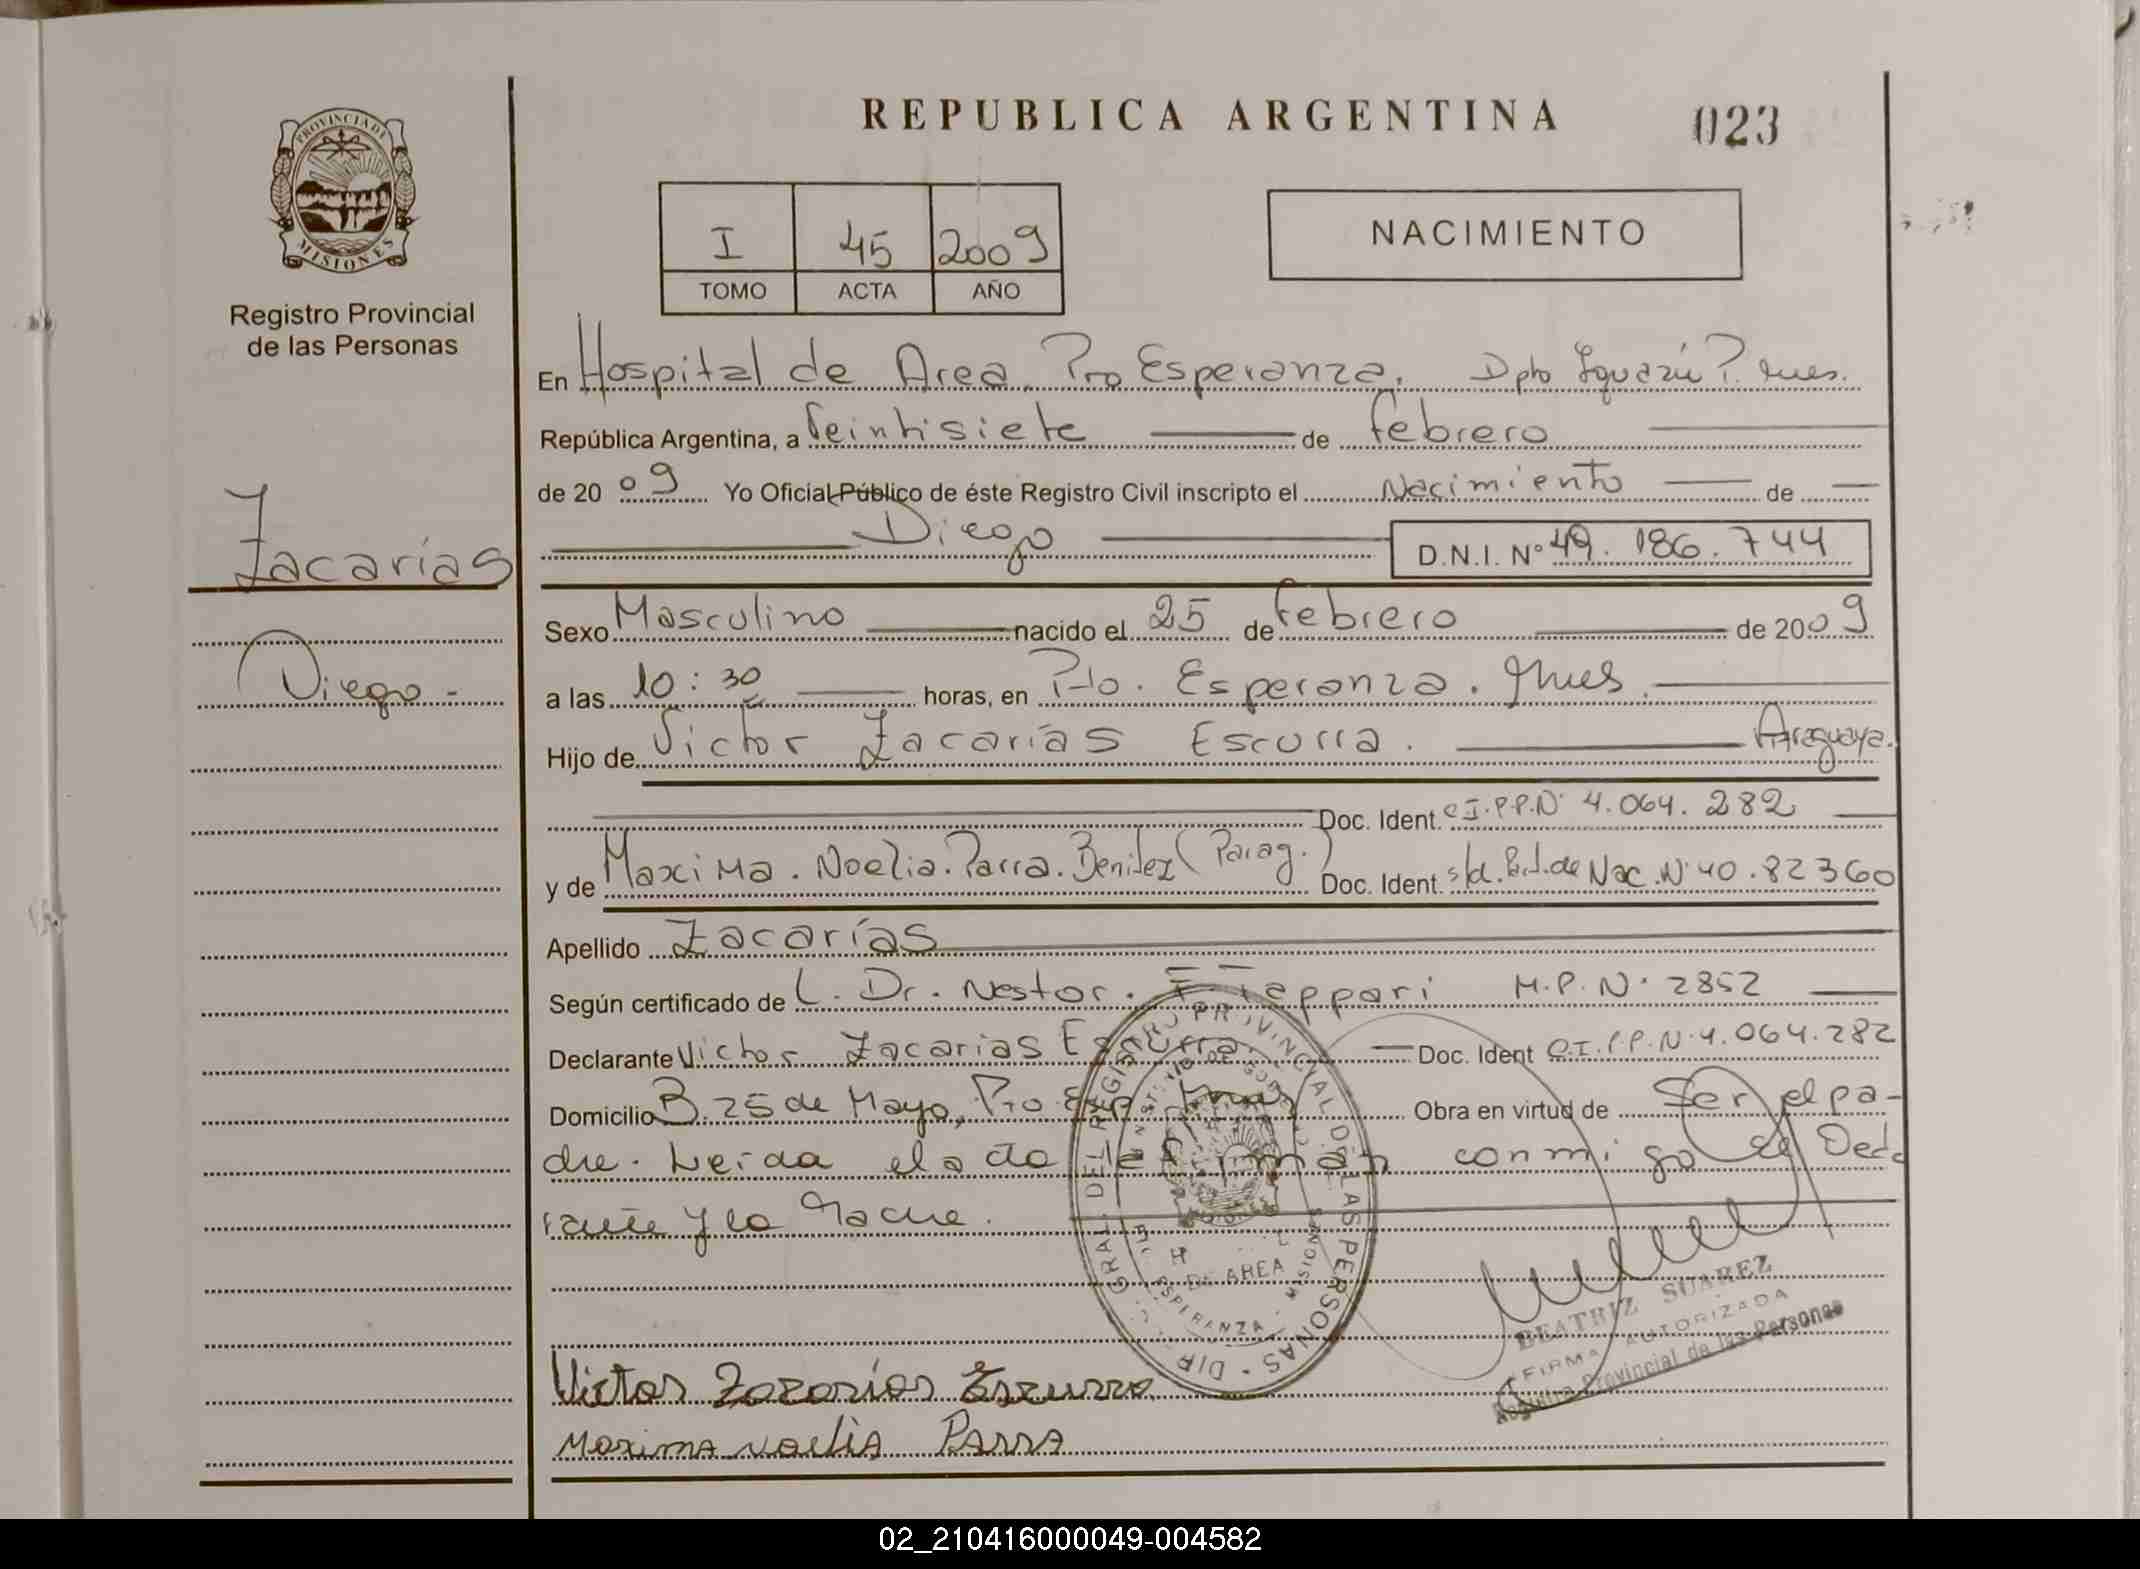 REPUBLICA ARGENTINA
023
PROVINCIA DE
MISIONES
Registro Provincial
de las Personas
I 45 2009
TOMO ACTA AÑO
NACIMIENTO
Zacarías
Diego -
En Hospital de Area Pto Esperanza. Dpto Iguazú P. Mnes.
República Argentina, a Veintisiete de febrero
de 2009 Yo Oficial Público de éste Registro Civil inscripto el Nacimiento de
Diego D.N.I. Nº 49.186.744
Sexo Masculino nacido el 25 de febrero de 2009
a las 10:30 horas, en Pto. Esperanza. Mnes
Hijo de Victor Zacarías Escurra.
Doc. Ident. C.I.P.P.Nº 4.064.282
y de Maxima. Noelia. Parra. Benitez (Parag.) Doc. Ident. s/d. de Nac. Nº 40.82360
Apellido Zacarías
Según certificado de L. Dr. Nestor. M.P.Nº 2852
Declarante Victor Zacarias Escurra Doc. Ident C.I.P.P.N. 4.064.282
Domicilio B. 25 de Mayo, Pto Esp Mnes Obra en virtud de Ser el pa-
dre. Leida el acta la firman conmigo el Decla
rante y la Madre.
DIR. GRAL. DEL REGISTRO PROVINCIAL DE LAS PERSONAS
DE AREA
ESPERANZA
MISIONES
BEATRIZ SUAREZ
FIRMA AUTORIZADA
Registro Provincial de las Personas
Victor Zacarías Escurra
Maxima Noelia PARRA
02_210416000049-004582